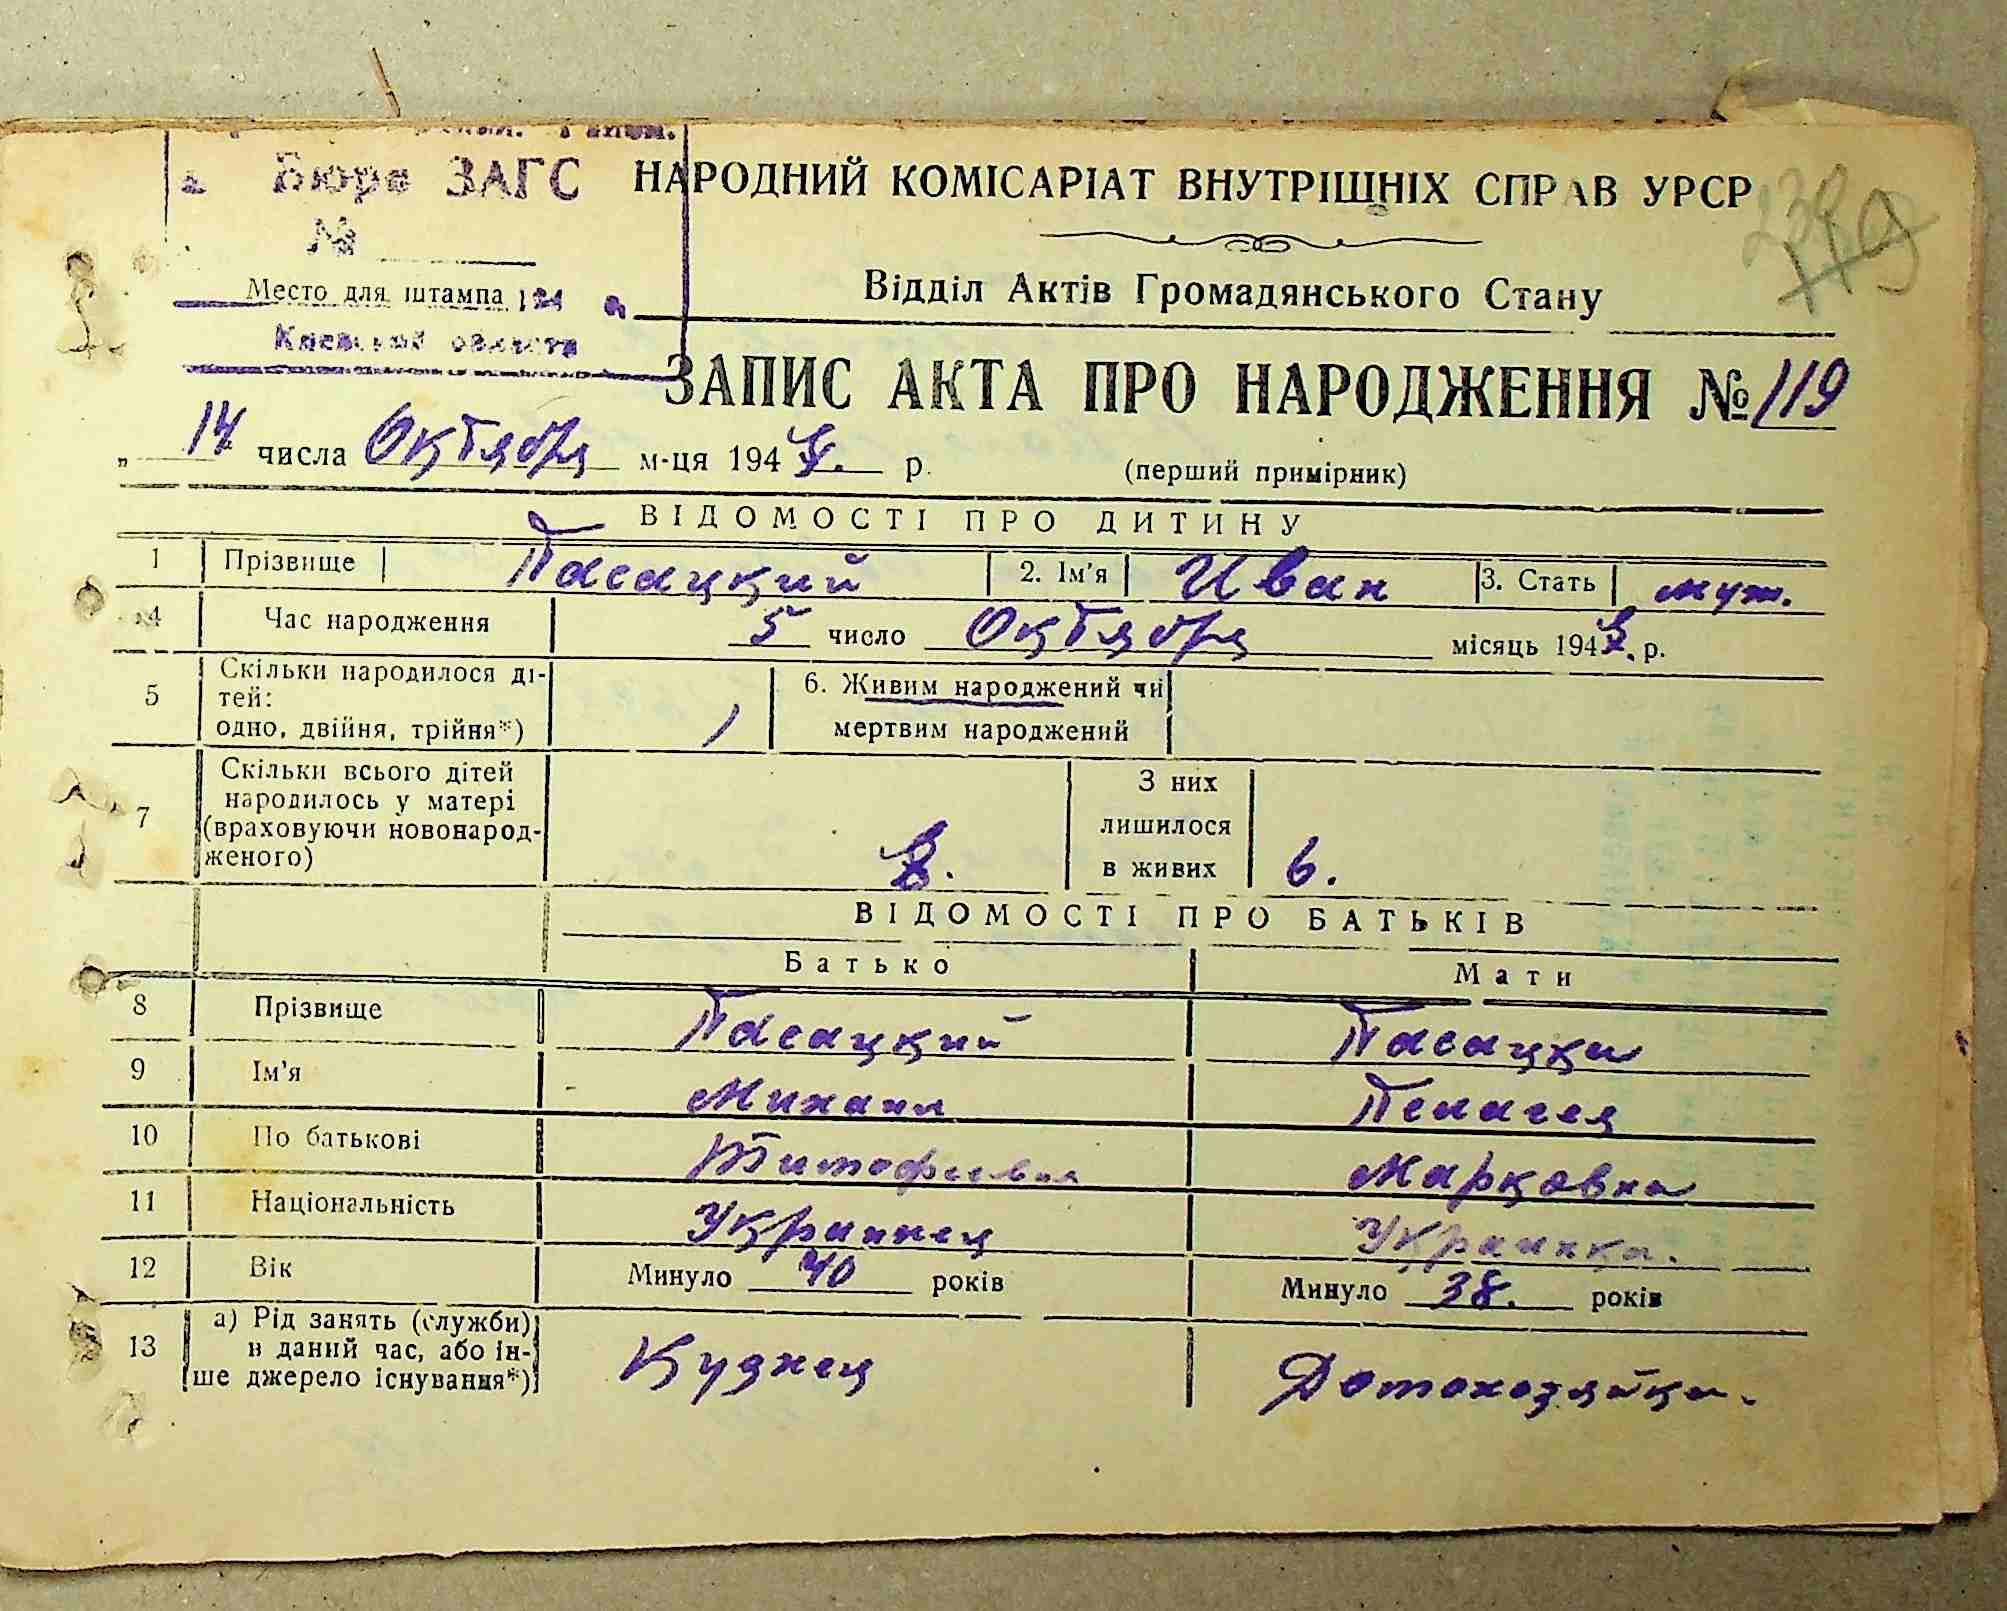 Бюро ЗАГС
№
Место для штампа 194
Киевской области
НАРОДНИЙ КОМІСАРІАТ ВНУТРІШНІХ СПРАВ УРСР
Відділ Актів Громадянського Стану
ЗАПИС АКТА ПРО НАРОДЖЕННЯ № 119
„ 14 числа Октября м-ця 194 р. (перший примірник)
ВІДОМОСТІ ПРО ДИТИНУ
1 Прізвище Пасацкий 2. Ім'я Иван 3. Стать муж.
4 Час народження 5 число Октября місяць 194 р.
5 Скільки народилося ді-
тей:
одно, двійня, трійня*) 1 6. Живим народжений чи
мертвим народжений
7 Скільки всього дітей
народилось у матері
(враховуючи новонарод-
женого) 8. З них
лишилося
в живих 6.
ВІДОМОСТІ ПРО БАТЬКІВ
Батько Мати
8 Прізвище Пасацкий Пасацка
9 Ім'я Михаил Пелагея
10 По батькові Тимофиевич Марковна
11 Національність Украинец Украинка.
12 Вік Минуло 40 років Минуло 38. років
13 а) Рід занять (служби)
в даний час, або ін-
ше джерело існування*) Кузнец Домохозяйка.